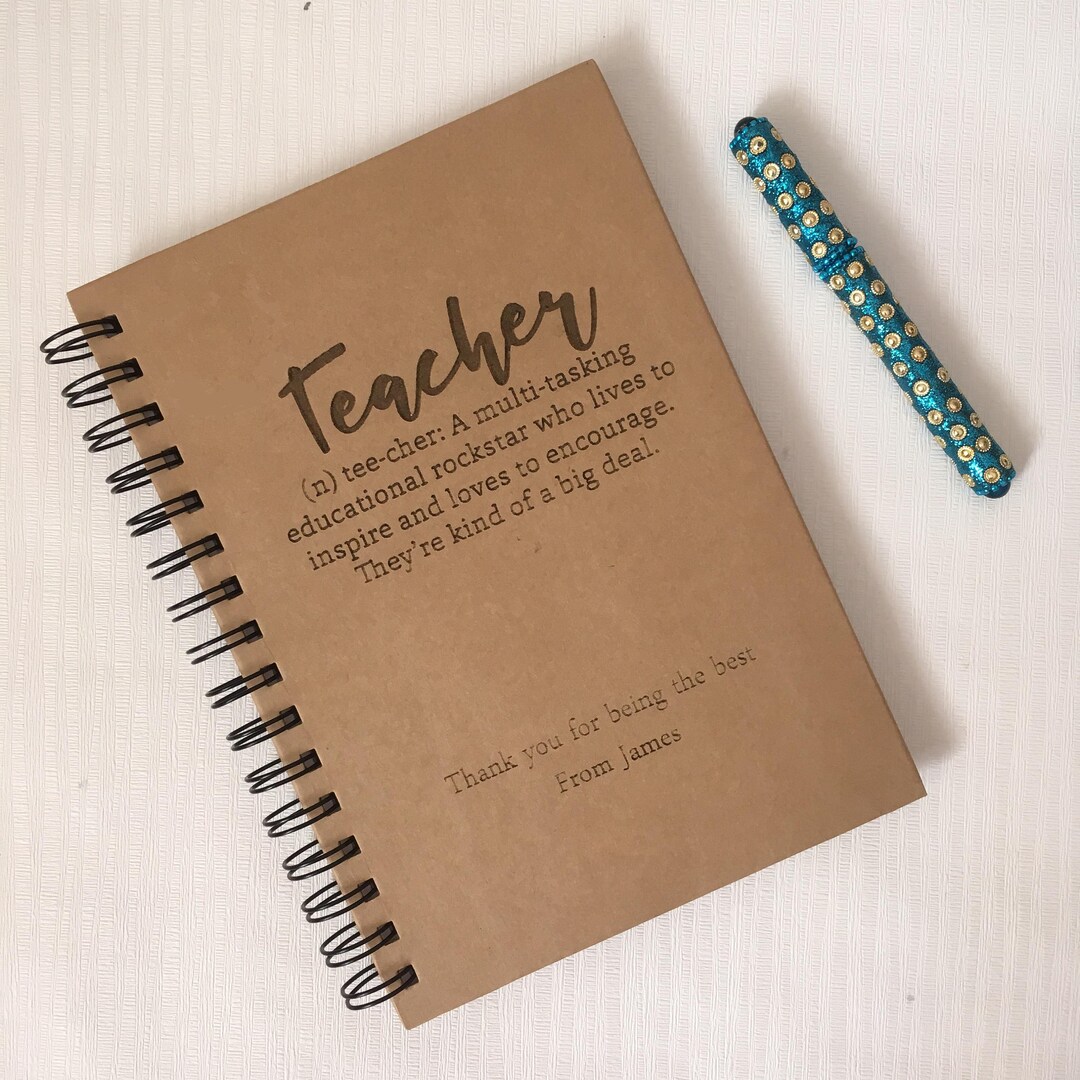 Teacher
(n) tee-cher: A multi-tasking
educational rockstar who lives to
inspire and loves to encourage.
They're kind of a big deal.
Thank you for being the best
From James